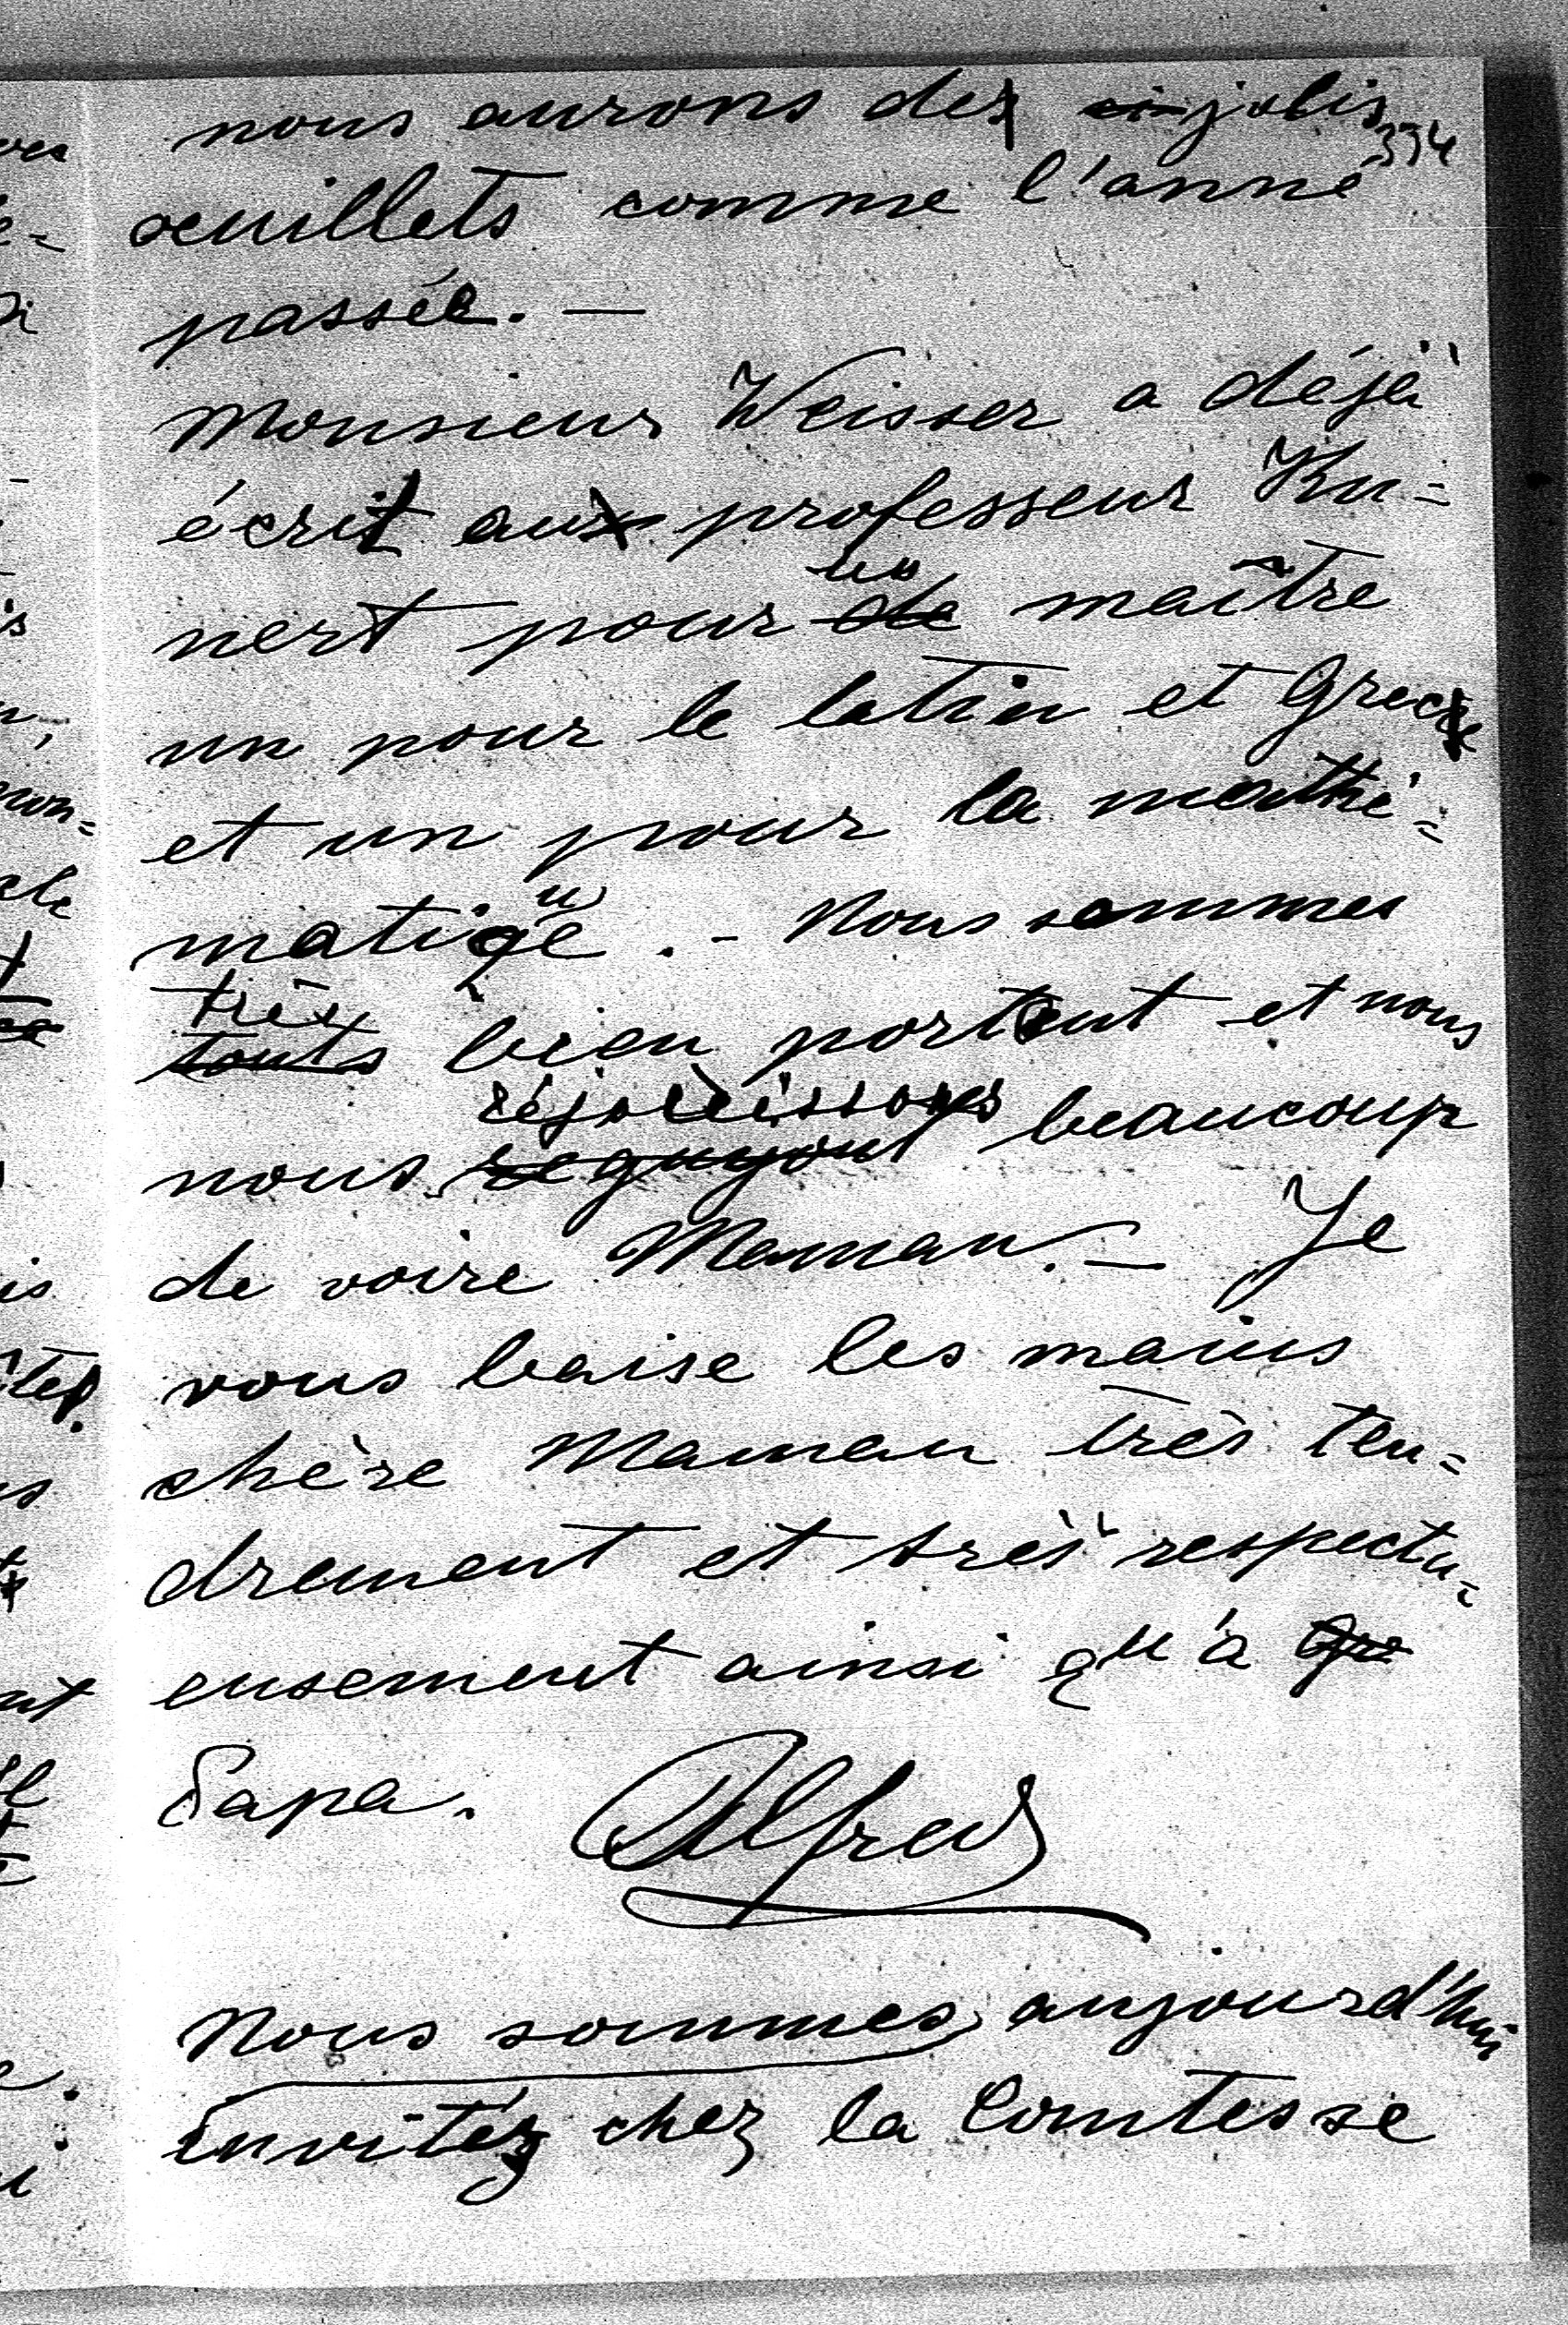 nous aurons des jolis
334
oeuillets comme l'anné
passée. —
Monsieur Weisser a déjà
écrit au professeur Ku=
nert pour un maître
un pour le latin et Grec
et un pour la mathé=
matique. - Nous sommes
très bien portant et nous
nous réjouissons beaucoup
de voire Maman. — Je
vous baise les mains
chère Maman très ten=
drement et très respectu=
eusement ainsi qu'à
Papa.
Alfred
Nous sommes aujourd'hui
invités chez la Comtesse